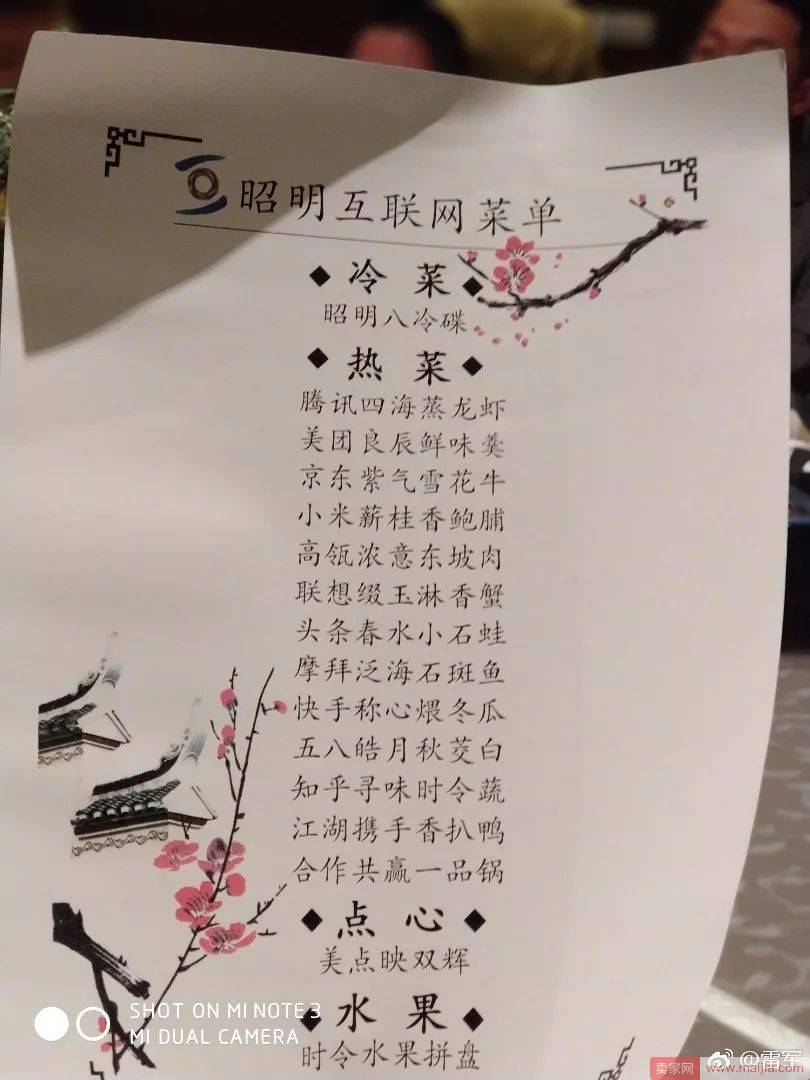 昭明互联网菜单
◆ 冷菜 ◆
昭明八冷碟
◆ 热菜 ◆
腾讯四海蒸龙虾
美团良辰鲜味羹
京东紫气雪花牛
小米薪桂香鲍脯
高瓴浓意东坡肉
联想缀玉淋香蟹
头条春水小石蛙
摩拜泛海石斑鱼
快手称心煨冬瓜
五八皓月秋茭白
知乎寻味时令蔬
江湖携手香扒鸭
合作共赢一品锅
◆ 点心 ◆
美点映双辉
◆ 水果 ◆
时令水果拼盘
SHOT ON MI NOTE 3
MI DUAL CAMERA
@雷军
卖家网 www.maijia.com